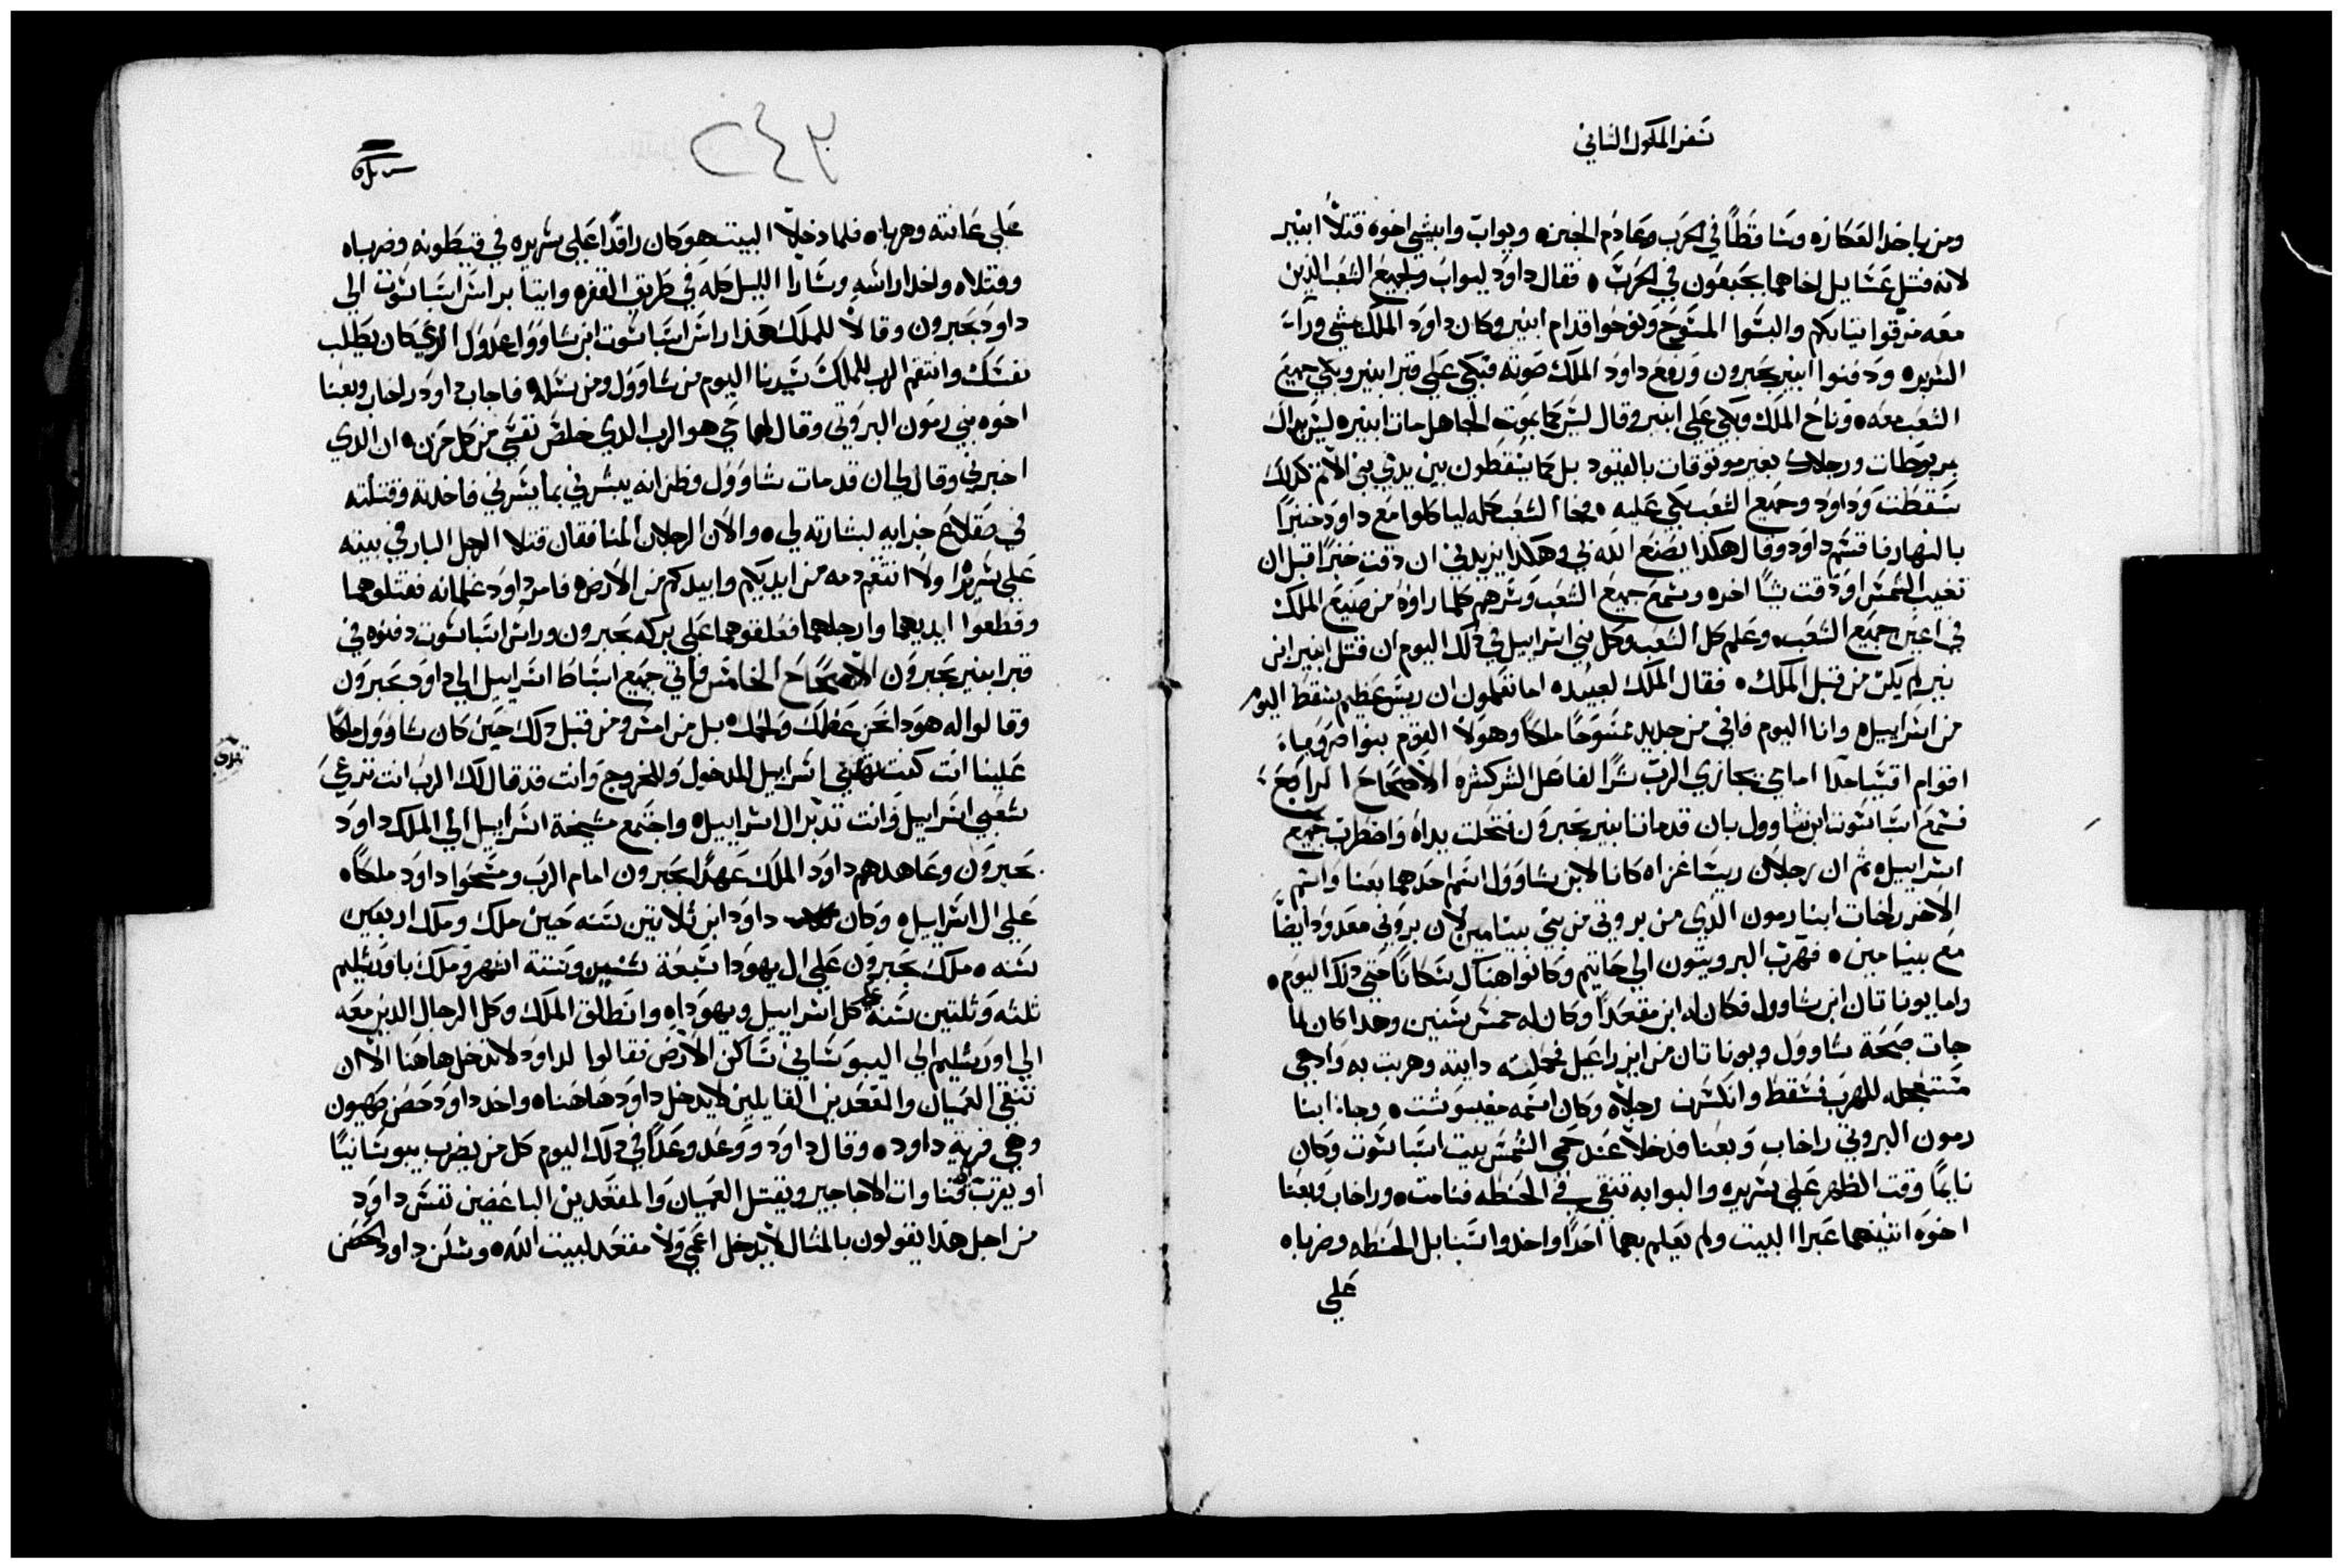 سفر الملوك الثاني
ومن ياخد العكازه وساقطاً في الحرب وعادم الخبزه ويواب وابيشي اخوه قتلاً ابنير
لانه قتل عسايل اخاهما بجبعون في الحرب ه فقال داود ليواب ولجميع الشعب الذين
معه مزقوا ثيابكم والبسوا المسوح ونوحوا قدام ابنير وكان داود الملك يمشي ورآ
السريره ودفنوا ابنير بحبرون ورفع داود الملك صوته فبكي علي قبر ابنير وبكي جميع
الشعب معه ه وناح الملك وبكي علي ابنير وقال ليس كما يموت الجاهل مات ابنيره ليس يداك
مربوطات ورجلاك بغير موثوقات بالقيود بل كما يسقطون بين يدي بني الاثم كدلك
سقطت وداود وجميع الشعب بكي عليه ه فجا الشعب كله لياكلوا مع داود خبزاً
بالنهار فاقسم داود وقال هكدا يصنع الله بي وهكدا يزيدني ان دقت خبزاً قبل ان
تغيب الشمس او دقت شياً اخره وسمع جميع الشعب وسرهم كلما راوه من صنيع الملك
في اعين جميع الشعب ه وعلم كل الشعب وكل بني اسراييل في دلك اليوم ان قتل ابنير ابن
نير لم يكن من قبل الملك ه فقال الملك لعبيده اما تعلمون ان ريس عظيم سقط اليوم
من اسراييل ه وانا اليوم فاني من جديد ممسوحاً ملكاً وهولا القوم بنوا صروياه
اقوام اقسيا جداً اماي يجازي الرب شراً لفاعل الشر كشره الاصحاح الرابع
فسمع اسباسوت ابن شاوول بان قد مات ابنير بحبرون فنحلت يداه واضطرب جميع
اسراييل ه ثم ان رجلان ريسا غزاه كانا لابن شاوول اسم احدهما بعنا واسم
الاخر راخاب ابنا رمون الدي من بروتي من بني بنيامين لان بروتي معدود ايضاً
مع بنيامين ه فهرب البرويتون الي جاثيم وكانوا هناك سكاناً حتي دلك اليوم ه
واما يوناتان ابن شاوول فكان له ابن مقعداً وكان له خمس سنين وهدا كان لما
جات صيحة شاوول ويوناتان من ايزراعيل فحملته دايته وهربت به واد هي
مستعجله للهرب فسقط وانكسرت رجلاه وكان اسمه مفيبوست ه وجاا ابنا
رمون البروتي راخاب وبعنا فدخلا عند حمي الشمس بيت اسباسوت وكان
نايماً وقت الظهر علي سريره والبوابه تنقي في الحنطه فنامت ه وراخاب وبعنا
اخوه اتنينهما عبرا البيت ولم يعلم بهما احداً واخدوا سنابل الحنطه وضرباه
علي
٢٤٣
علي عانته وهربا ه فلما دخلا البيت هو كان راقداً علي سريره في قيطونه وضرباه
وقتلاه واخدا راسه وسارا الليل كله في طريق القفره واتيا براس اسباسوت الي
داود بحبرون وقالا للملك هدا راس اسباسوت ابن شاوول عدول الدي كان يطلب
نفسك وانتقم الرب للملك سيدنا اليوم من شاوول ومن نسله فاجاب داود راخاب وبعنا
اخوه بني رمون البروتي وقال لهما حي هو الرب الدي خلص نفسي من كل حزن ه ان الدي
اخبرني وقال لي ان قد مات شاوول وظن انه يبشرني بما يسرني فاخدته وقتلته
في صقلاغ جزايه لبشارته لي ه والان الرجلان المنافقان قتلا الرجل البار في بيته
علي سريره اولا انتقم دمه من ايديكم وابيدكم من الارض ه فامر داود غلمانه فقتلوهما
وقطعوا ايديهما وارجلهما فعلقوهما علي بركه بحبرون وراس اسباسوت دفنوه في
قبر ابنير بحبرون الاصحاح الخامس فاتي جميع اسباط اسراييل الي داود بحبرون
وقالوا له هودا نحن عظمك ولحمك ه بل من امس ومن قبل دلك حين كان شاوول ملكاً
علينا انت كنت تهدي اسراييل للدخول وللخروج وانت فقد قال لك الرب انت ترعي
شعبي اسراييل وانت تدبر ال اسراييل ه واجتمع مشيخة اسراييل الي الملك داود
بحبرون وعاهدهم داود الملك عهداً بحبرون امام الرب ومسحوا داود ملكاً ه
علي ال اسراييل ه وكان داود ابن ثلاثين سنه حين ملك وملك اربعين
سنه ه ملك بحبرون علي ال يهودا سبعة سنين وستة اشهر وملك باورشليم
ثلثه وثلثين سنه علي كل اسراييل ويهوداه وانطلق الملك وكل الرجال الدين معه
الي اورشليم الي اليبوساني ساكن الارض فقالوا لداود لا تدخل هاهنا الا ان
تنفي العميان والمقعدين القايلين لا يدخل داود هاهنا ه واخد داود حصن صهيون
وهي قرية داود ه وقال داود ووعد وعداً في دلك اليوم كل من يضرب يبوسانياً
او يقرب قنا وات الاجاجير ويقتل العميان والمقعدين الباغضين نفس داود
من اجل هدا يقولون بالمثال لا يدخل اعمي ولا مقعد لبيت الله ه وسكن داود الحصن